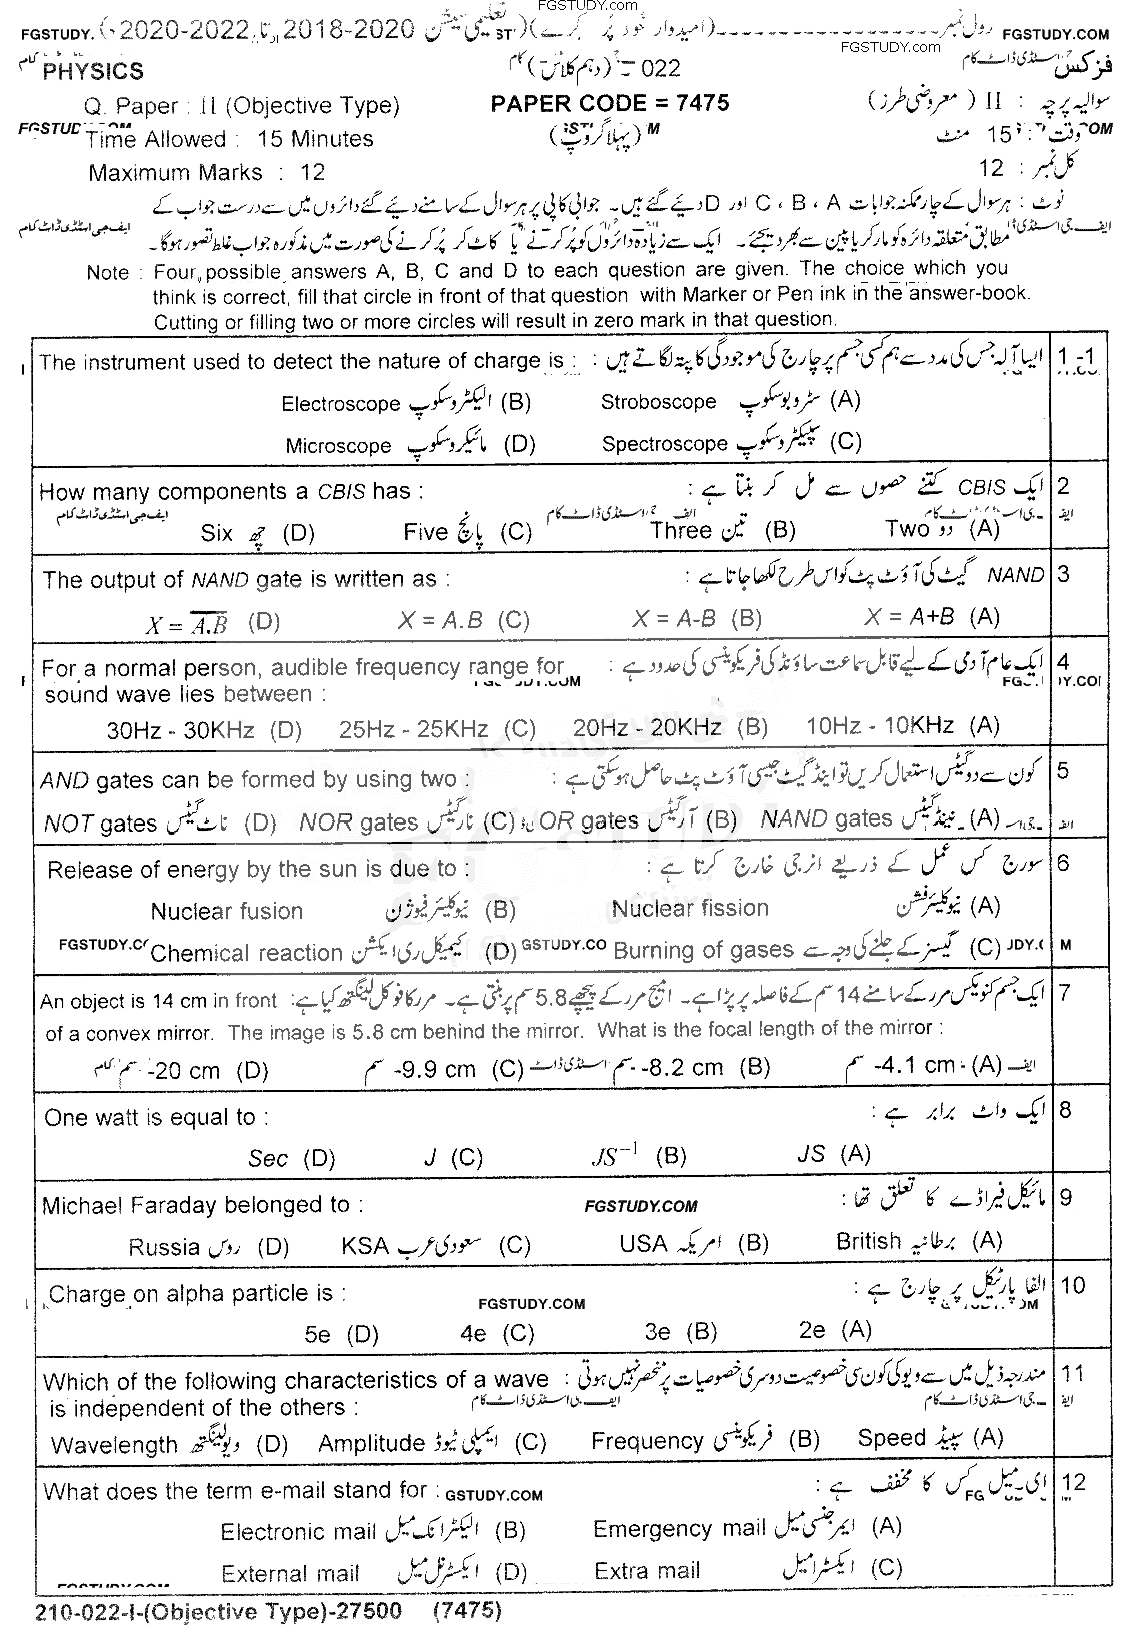 FGSTUDY.com
FGSTUDY. (تعلیمی سیشن 2018-2020 تا 2020-2022) (امیدوار خود پُر کرے) رول نمبر FGSTUDY.COM
FGSTUDY.com
PHYSICS 022 (دہم کلاس) فزکس
Q. Paper : II (Objective Type) PAPER CODE = 7475 سوالیہ پرچہ : II (معروضی طرز)
Time Allowed : 15 Minutes (پہلا گروپ) وقت : 15 منٹ
Maximum Marks : 12 کل نمبر : 12
نوٹ : ہر سوال کے چار ممکنہ جوابات A ، B ، C اور D دیئے گئے ہیں۔ جوابی کاپی پر ہر سوال کے سامنے دیئے گئے دائروں میں سے درست جواب کے
مطابق متعلقہ دائرہ کو مارکر یا پین سے بھر دیجئے۔ ایک سے زیادہ دائروں کو پُر کرنے یا کاٹ کر پُر کرنے کی صورت میں مذکورہ جواب غلط تصور ہوگا۔
Note : Four possible answers A, B, C and D to each question are given. The choice which you
think is correct, fill that circle in front of that question with Marker or Pen ink in the answer-book.
Cutting or filling two or more circles will result in zero mark in that question.
The instrument used to detect the nature of charge is : ایسا آلہ جس کی مدد سے ہم کسی جسم پر چارج کی موجودگی کا پتہ لگاتے ہیں : 1-1
Electroscope الیکٹروسکوپ (B) Stroboscope سٹروبوسکوپ (A)
Microscope مائیکروسکوپ (D) Spectroscope سپیکٹروسکوپ (C)
How many components a CBIS has : ایک CBIS کتنے حصوں سے مل کر بنتا ہے : 2
Six چھ (D) Five پانچ (C) Three تین (B) Two دو (A)
The output of NAND gate is written as : NAND گیٹ کی آؤٹ پٹ کو اس طرح لکھا جاتا ہے : 3
X = \overline{A.B} (D) X = A.B (C) X = A-B (B) X = A+B (A)
For a normal person, audible frequency range for ایک عام آدمی کے لیے قابل سماعت ساؤنڈ کی فریکوئنسی کی حدود ہے : 4
sound wave lies between :
30Hz - 30KHz (D) 25Hz - 25KHz (C) 20Hz - 20KHz (B) 10Hz - 10KHz (A)
AND gates can be formed by using two : کون سے دو گیٹس استعمال کریں تو اینڈ گیٹ جیسی آؤٹ پٹ حاصل ہو سکتی ہے : 5
NOT gates ناٹ گیٹس (D) NOR gates نارگیٹس (C) OR gates آرگیٹس (B) NAND gates نینڈ گیٹس (A)
Release of energy by the sun is due to : سورج کس عمل کے ذریعے انرجی خارج کرتا ہے : 6
Nuclear fusion نیوکلیئر فیوژن (B) Nuclear fission نیوکلیئر فشن (A)
FGSTUDY.C Chemical reaction کیمیکل ری ایکشن (D) GSTUDY.CO Burning of gases گیسز کے جلنے کی وجہ سے (C)
An object is 14 cm in front ایک جسم کنویکس مرر کے سامنے 14 سم کے فاصلہ پر پڑا ہے۔ امیج مرر کے پیچھے 5.8 سم پر بنتی ہے۔ مرر کا فوکل لینگتھ کیا ہے : 7
of a convex mirror. The image is 5.8 cm behind the mirror. What is the focal length of the mirror :
-20 cm سم (D) -9.9 cm سم (C) -8.2 cm سم (B) -4.1 cm سم (A)
One watt is equal to : ایک واٹ برابر ہے : 8
Sec (D) J (C) JS⁻¹ (B) JS (A)
Michael Faraday belonged to : FGSTUDY.COM مائیکل فیراڈے کا تعلق تھا : 9
Russia روس (D) KSA سعودی عرب (C) USA امریکہ (B) British برطانیہ (A)
Charge on alpha particle is : FGSTUDY.COM الفا پارٹیکل پر چارج ہے : 10
5e (D) 4e (C) 3e (B) 2e (A)
Which of the following characteristics of a wave مندرجہ ذیل میں سے ویو کی کون سی خصوصیت دوسری خصوصیات پر منحصر نہیں ہوتی : 11
is independent of the others :
Wavelength ویولینگتھ (D) Amplitude ایمپلی ٹیوڈ (C) Frequency فریکوئنسی (B) Speed سپیڈ (A)
What does the term e-mail stand for : GSTUDY.COM ای-میل کس کا مخفف ہے : 12
Electronic mail الیکٹرانک میل (B) Emergency mail ایمرجنسی میل (A)
External mail ایکسٹرنل میل (D) Extra mail ایکسٹرا میل (C)
210-022-I-(Objective Type)-27500 (7475)